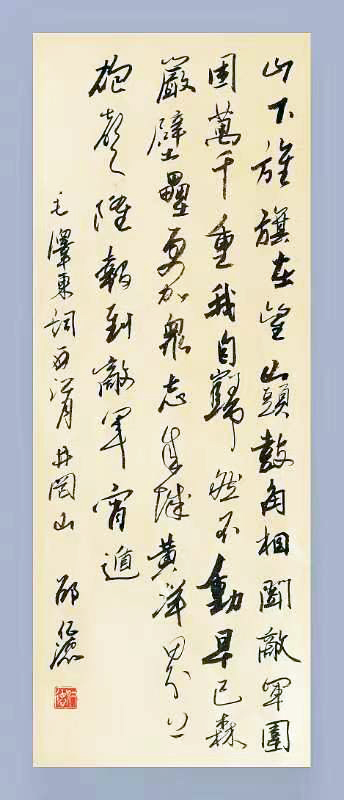 山下旌旗在望山頭鼓角相聞敵軍圍
困萬千重我自巋然不動早已森
嚴壁壘更加衆志成城黃洋界上
砲聲隆報到敵軍宵遁
毛澤東詞西江月井岡山 邵